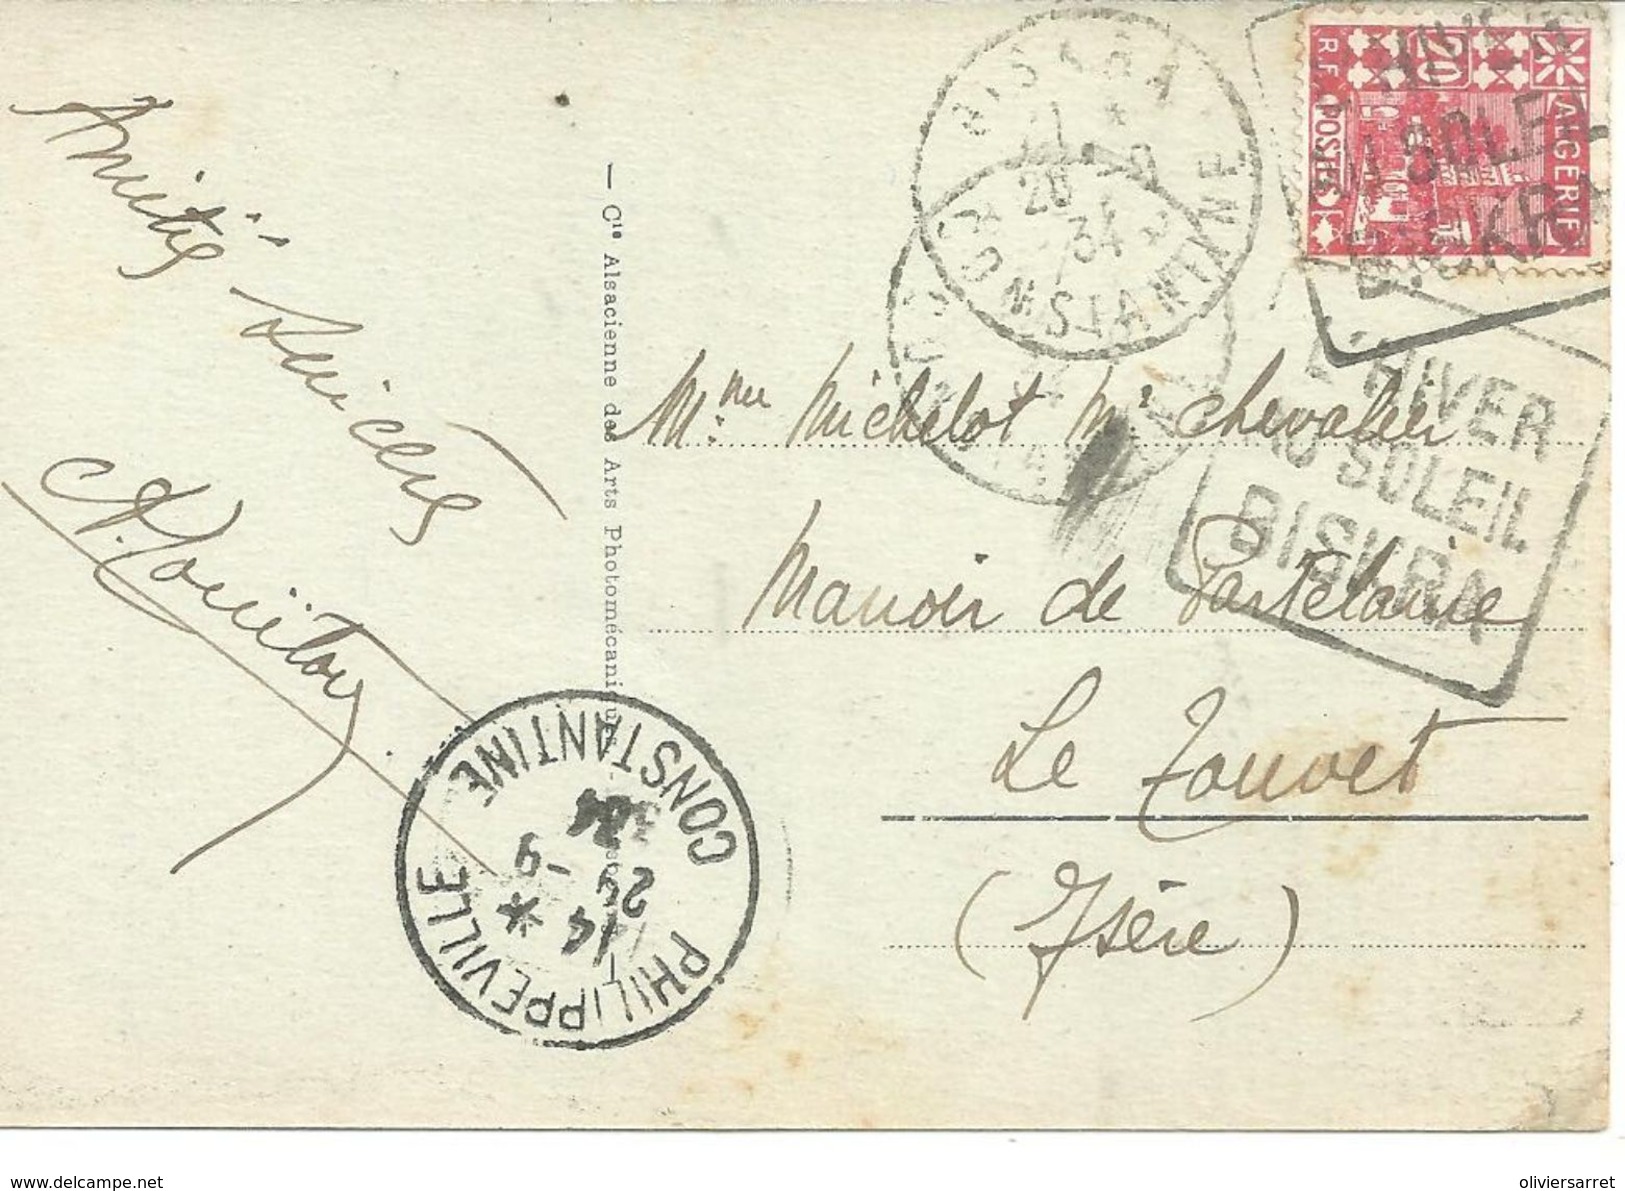 Amitiés
sincères
— Cie Alsacienne des Arts Photomécaniques
BISKRA
CONSTANTINE
20
34
R.F. 20
POSTES
ALGERIE
L'HIVER
AU SOLEIL
BISKRA
L'HIVER
AU SOLEIL
BISKRA
Mme Michelot Mr chevalier
Manoir de
Le Touvet
(Isère)
PHILIPPEVILLE
CONSTANTINE
*
14
29 -9
34
www.delcampe.net
oliviersarret